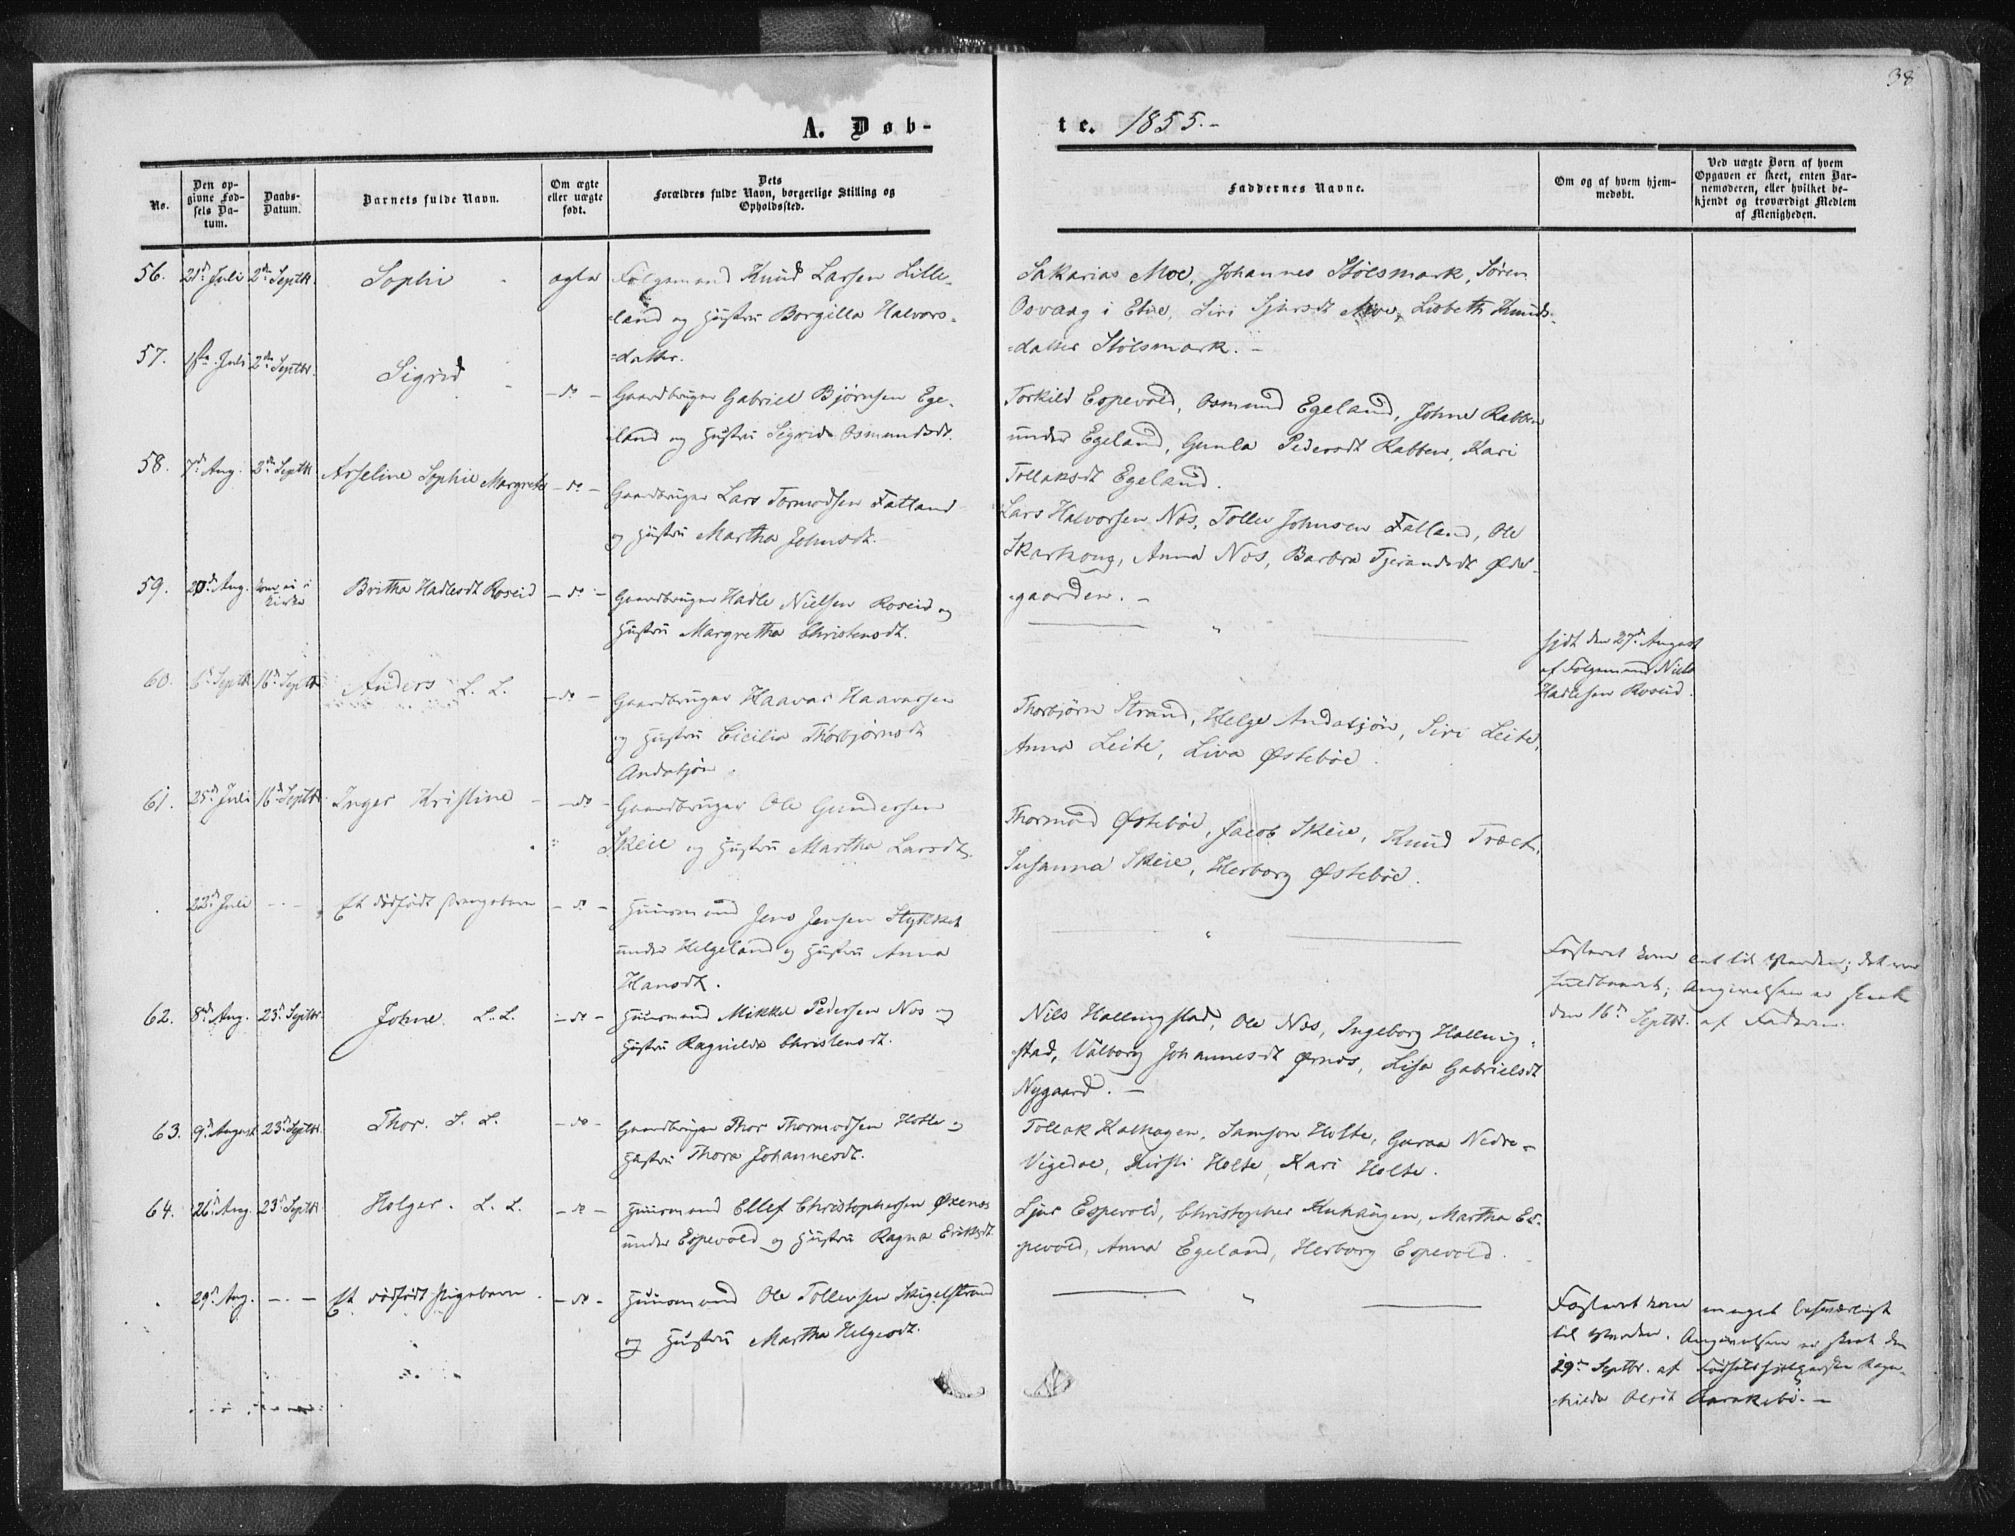 38
A. Døb-
te. 1855.-
No.
Den op-
givne Fød-
sels Da-
tum.
Daabs-
Datum.
Barnets fulde Navn.
Om ægte
eller uægte
født.
Dets
Forældres fulde Navn, borgerlige Stilling og
Opholdssted.
Faddernes Navne.
Om og af hvem hjem-
medøbt.
Ved uægte Børn af hvem
Opgaven er skeet, enten Bar-
nemoderen, eller hvilket be-
kjendt og troværdigt Medlem
af Menigheden.
56. 21de Juli 2den Septbr. Sophi ægte Følgemand Knud Larsen Lille-
=land og Hustru Borgilla Halvors=
=datter.
Sakarias Moe, Johannes Stölsmark, Sören
Osvaag i Etne, Siri Sjursdt Moe, Lisbeth Knuds-
=datter Stölsmark. -
57. Juli 2den Septbr. Sigrid - do - Gaardbruger Gabriel Bjørnsen Ege-
land og Hustru Sigrida Osmundsdt.
Torkild Espevold, Osmund Egeland, Johne Rabben
under Egeland, Gunla Pedersdt Rabben, Kari
Tollaksdt Egeland.
58. 7de Aug. 2den Septbr. Asseline Sophie Margrete - do - Gaardbruger Lars Tormodsen Fatland
og Hustru Martha Johnsdt.
Lars Halvorsen Nes, Tollev Johnsen Fatland, Ole
Skarhoug, Anna Nes, Barbra Tjerandsdt Øde-
-gaarden. -
59. 20de Aug. Kom ei i
Kirke Britha Hadlesdt Roseid - do - Gaardbruger Hadle Nielsen Roseid og
Hustru Margretha Christensdt.
hjdt den 27de August
af Følgemand Niels
Hadlesen Roseid.
60. 6te Septbr 16de Septbr Anders L. L. - do - Gaardbruger Haavar Haavarsen
og Hustru Cicilia Thorbjørnsdt
Andasjön.
Thorbjörn Strand, Helge Andasjön, Siri Leite,
Anna Leite, Liva Østebøe.
61. 25de Juli 16de Septbr. Inger Kristine - do - Gaardbruger Ole Gundersen
Skeie og Hustru Martha Larsdt.
Thormod Østebøe, Jacob Skeie, Knud Træet,
Susanna Skeie, Herborg Østebøe.
22de Juli - . - Et dödfödt Drengebarn - do - Huusmand Jens Jensen Stykket
under Helgeland og Hustru Anna
Hansdt.
Fosteret kom ent til Verden; det var
fuldbaaret; Angivelsen er skeet
den 16de Septbr. af Faderen.
62. 8de Aug. 23de Septbr Johne L.L. - do - Huusmand Mikkel Pedersen Nes og
Hustru Ragnilda Christensdt.
Nils Hallingstad, Ole Nes, Ingeborg Halling-
stad, Valborg Johannesdt Ørnes, Lisa Gabrielsdt
Nygaard. -
63. 9de August 23de Septbr. Thor. L. L. - do - Gaardbruger Thor Thormodsen Holte og
Hustru Thora Johannesdt.
Tollak Kalhagen, Samson Holte, Guraa Nedre-
Vigedal, Kirsti Holte, Kari Holte.
64. 26de Aug. 23de Septbr Holger. L. L. - do - Huusmand Ellef Christophersen Øxenes
under Espevold og Hustru Ragna Eriksdt.
Sjur Espevold, Christopher Kuhaugen, Martha Es-
pevold, Anna Egeland, Herborg Espevold.
29de Aug. - . - Et dödfödt Pigebarn. - do - Huusmand Ole Tollevsen Skigelstrand
og Hustru Martha Helgesdt.
Fosteret kom meget besværligt
til Verden. Angivelsen er skeet den
29de Septbr. af Födselshjelpersken Ragn-
hilda Olsdt -